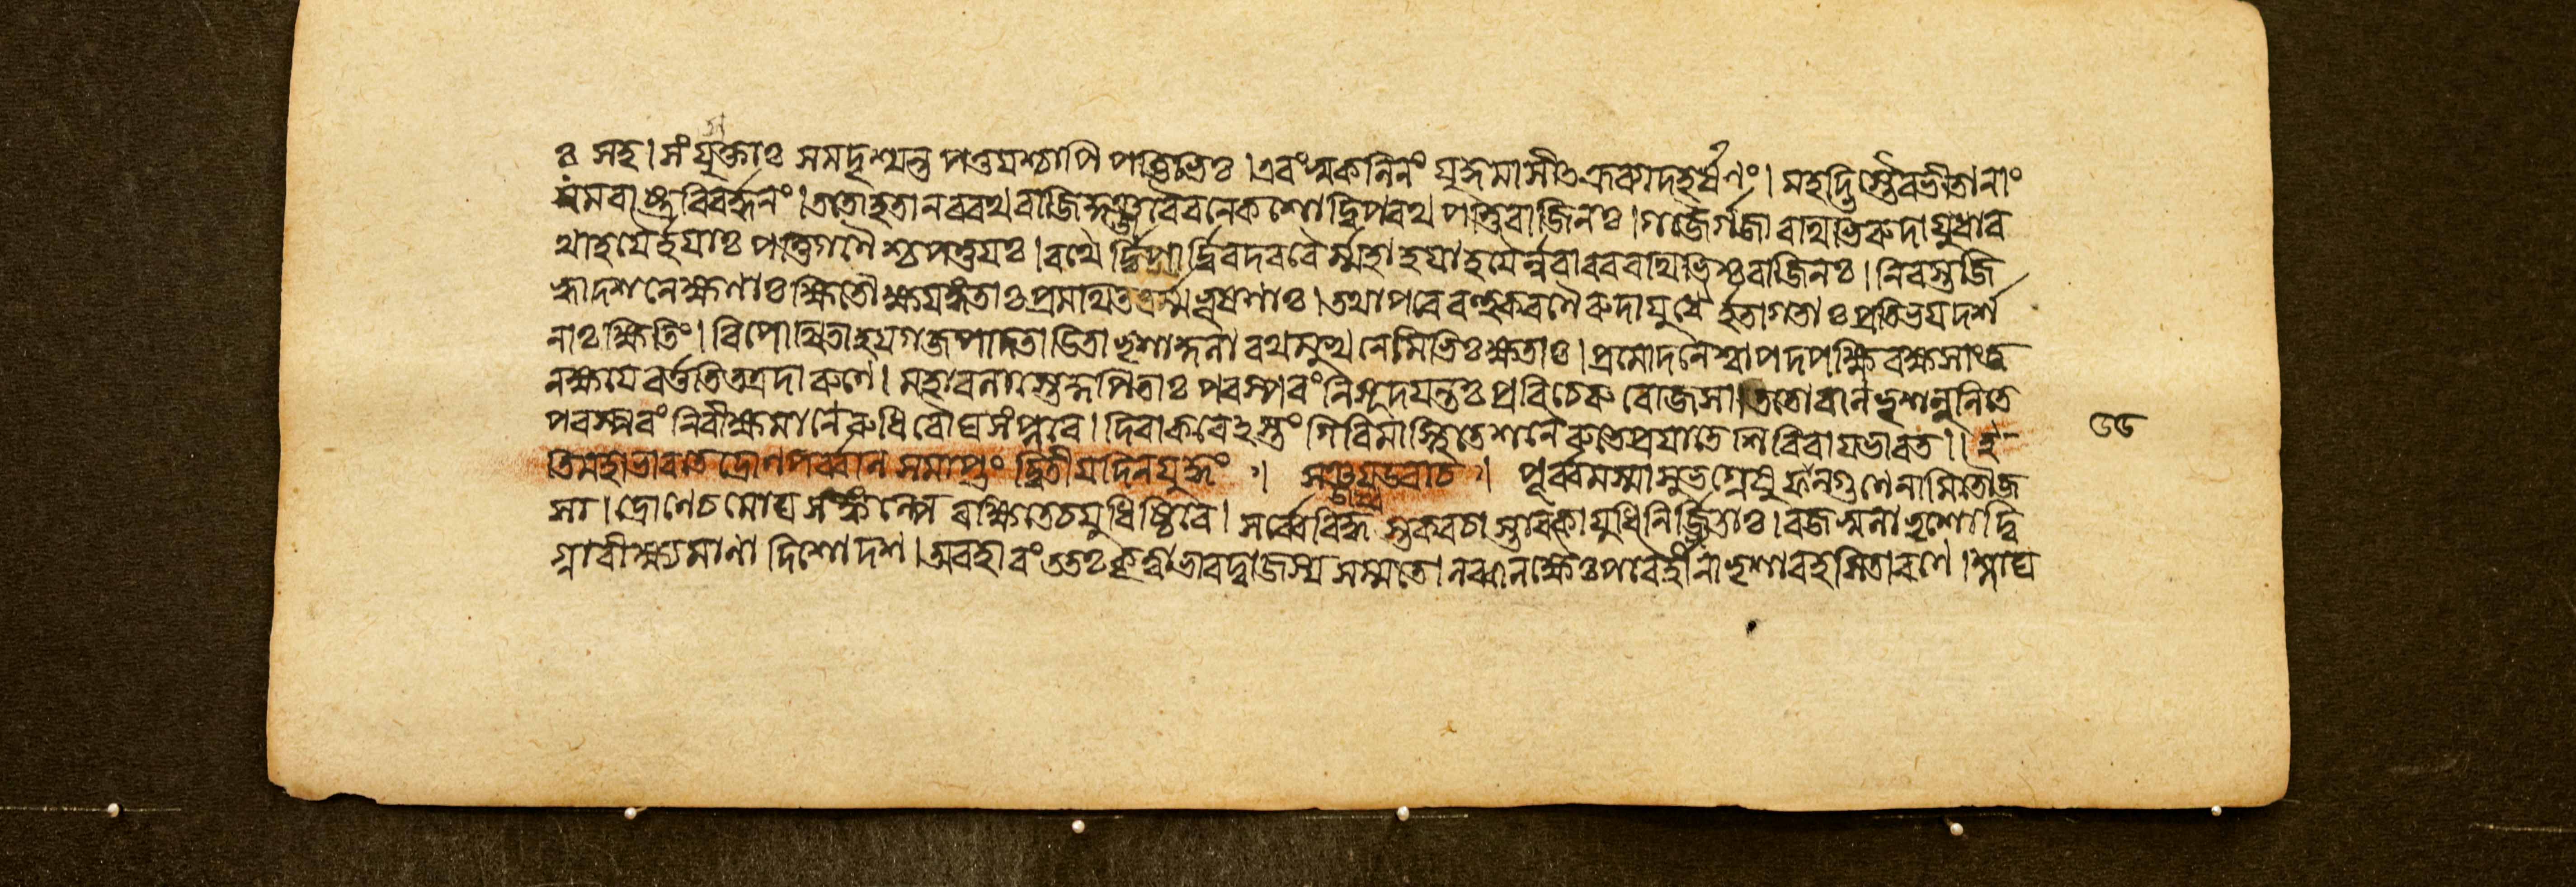 ঃ সহ। সংযুক্তাঃ সমদৃশ্যন্ত পত্তযশ্চাপি পত্তিভিঃ। এবং সুকলিলং যুদ্ধমাসীৎক্রব্যাদহর্ষণং। মহদ্ভিস্তৈরভীতানাং
যমরাষ্ট্রবিবর্দ্ধনং। ততোহতানররথবাজিকুঞ্জরৈরনেকশোদ্বিপরথপত্তিবাজিনঃ। গজৈর্গজারথিভিরুদাযুধার
থাহযৈর্হযাঃ পত্তিগণৈশ্চপত্তযঃ। রথৈর্দ্বিপাদ্বিরদবরৈর্ম্মহাহযাহযৈর্ন্নরাবররথিভিশ্চবাজিনঃ। নিরস্তজি
হ্বাদশনেক্ষণাঃক্ষিতৌক্ষযঙ্গতাঃপ্রমথিতবর্ম্মভূষণাঃ। তথাপরেবহুকরণৈরুদাযুধৈর্হতাগতাঃপ্রতিভযদর্শ
নাঃক্ষিতিং। বিপোথিতাহযগজপাদতাডিতাভৃশাকুলারথখুরনেমিভিঃক্ষতাঃ। প্রমোদনেশ্বাপদপক্ষিরক্ষসাংজ
নক্ষযেবর্ত্ততিতত্রদারুণে। মহাবলাস্তেকুপিতাঃ পরস্পরংনিসূদযন্তঃপ্রবিচেরুরোজসা। ততোবলেভৃশলুলিতে
পরস্পরংনিরীক্ষমাণেরুধিরৌঘসংপ্লবে। দিবাকরেঽস্তংগিরিমাস্থিতেশনৈরুভেপ্রযাতেশিবিরাযভারত॥ ই
তিমহাভারতেদ্রোণপর্ব্বণি সমাপ্তং দ্বিতীযদিনযুদ্ধং ॥ সঞ্জযউবাচ ॥ পূর্ব্বমস্মাসুভগ্নেষুফল্গুণেনামিতৌজ
সা। দ্রোণেচমোঘসঙ্কল্পে রক্ষিতেচযুধিষ্ঠিরে। সর্ব্বেবিধ্বস্তকবচাস্তাবকাযুধিনির্জ্জিতাঃ। রজস্বলাভৃশোদ্বি
গ্নাবীক্ষ্যমাণা দিশোদশ। অবহারংততঃকৃত্বাভারদ্বাজস্য সম্মতে। লব্ধলক্ষৈঃপরৈর্দ্দীনাভৃশাবহসিতারণে। শ্লাঘ